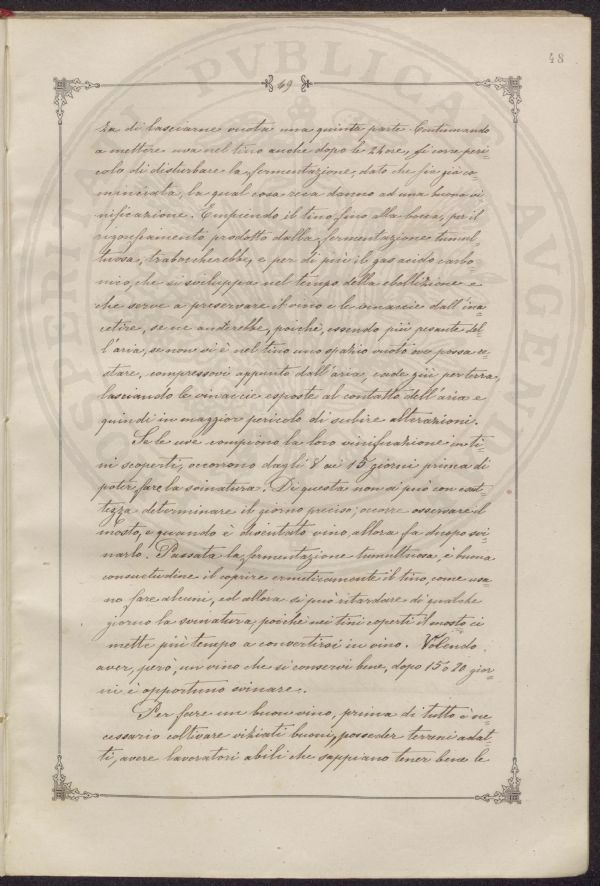 48
69
za di lasciarne vuota una quinta parte. Continuando
a mettere uva nel tino anche dopo le 24 ore, si corre peri-
colo di disturbare la fermentazione, dato che sia già co-
minciata, la qual cosa reca danno ad una buona vi-
nificazione. Empiendo il tino fino alla bocca, per il
rigonfiamento prodotto dalla fermentazione tumul-
tuosa, traboccherebbe, e per di più il gas acido carbo-
nico, che si sviluppa nel tempo della ebollizione e
che serve a preservare il vino e le vinaccie dall'ina-
cetire, se ne anderebbe, poichè, essendo più pesante del-
l'aria, se non vi è nel tino uno spazio vuoto ove possa re-
stare, compressovi appunto dall'aria, cade giù per terra,
lasciando le vinaccie esposte al contatto dell'aria e
quindi in maggior pericolo di subire alterazioni.
Se le uve compiono la loro vinificazione in ti-
ni scoperti, occorrono dagli 8 ai 15 giorni prima di
poter fare la svinatura. Di questa non si può con cer-
tezza determinare il giorno preciso; occorre osservare il
mosto, e quando è diventato vino, allora fa d'uopo svi-
narlo. Passata la fermentazione tumultuosa, è buona
consuetudine il coprire ermeticamente il tino, come usa
no fare alcuni, ed allora si può ritardare di qualche
giorno la svinatura, poichè nei tini coperti il mosto ci
mette più tempo a convertirsi in vino. Volendo
aver, però, un vino che si conservi bene, dopo 15 o 20 gior-
ni è opportuno svinare.
Per fare un buon vino, prima di tutto è ne-
cessario coltivare viziati buoni, posseder terreni adat-
ti, avere lavoratori abili che sappiano tener bene le
PVBLICAE
AVGENDAE